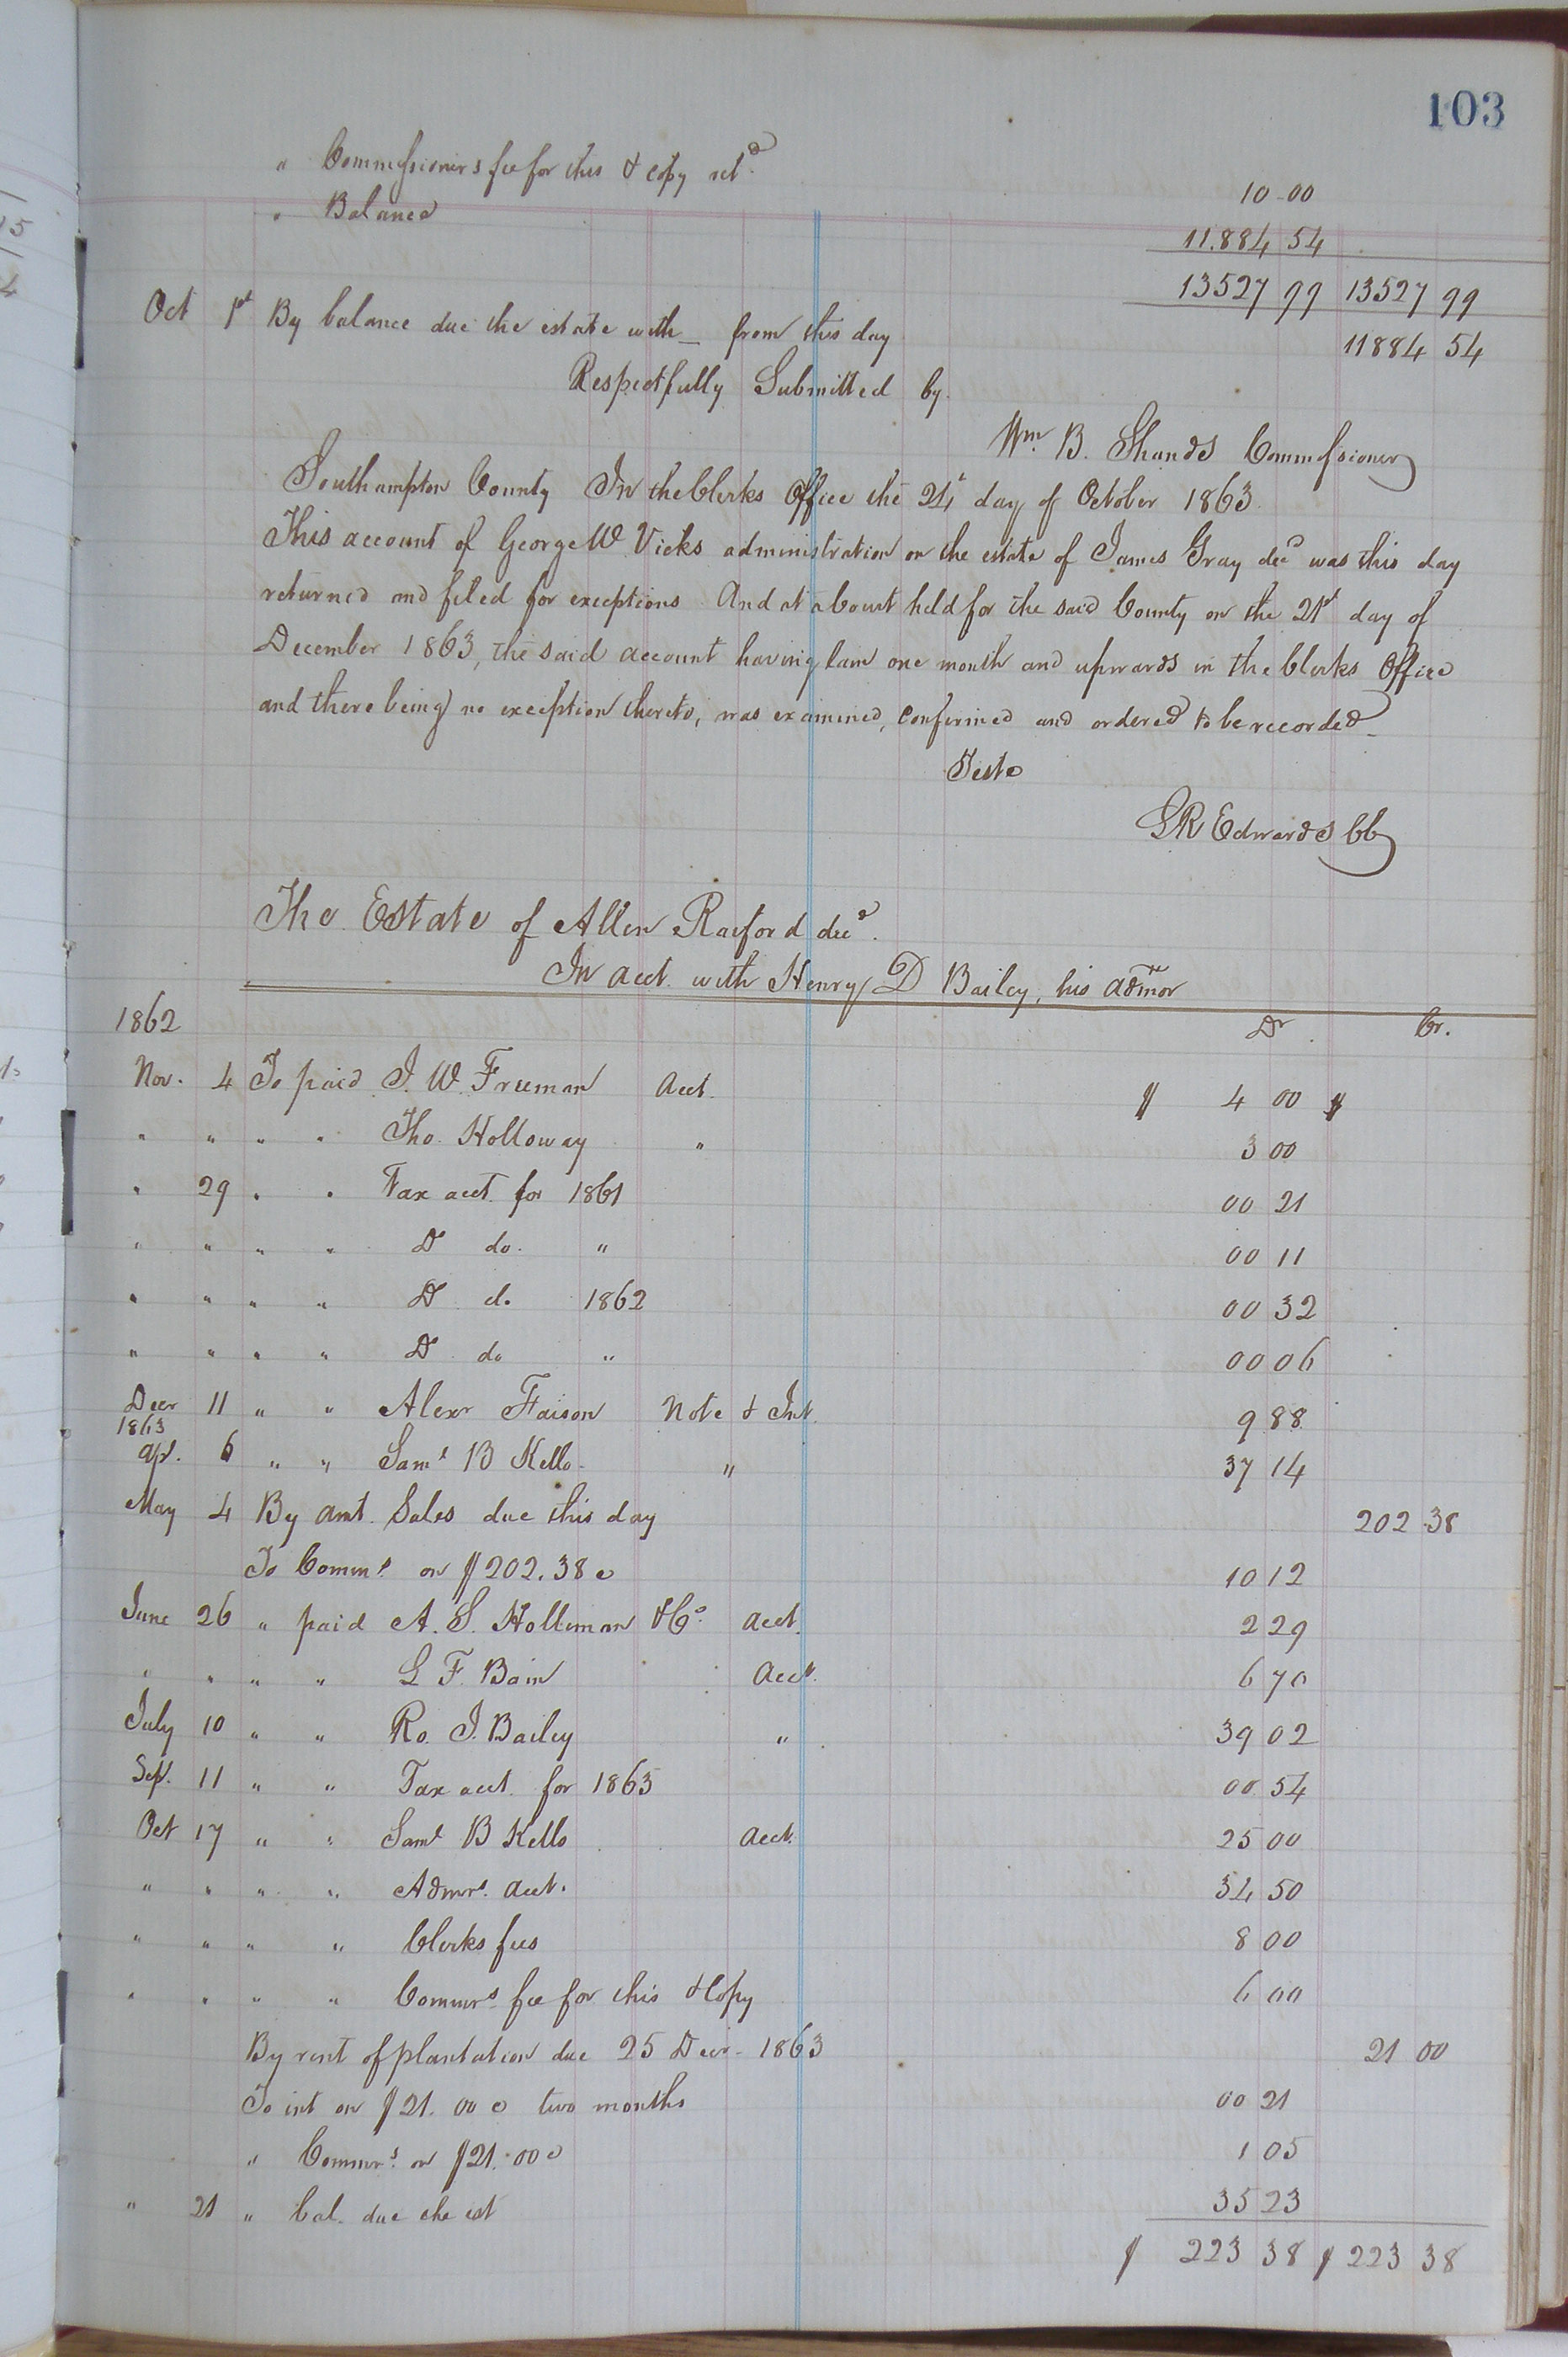 103
" Commissioners fee for this & copy retd. 10-00
" Balance 11.884 54
13527 99 13527 99
Oct 1st By balance due the estate with_ from this day 11884 54
Respectfully Submitted by
Wm. B. Shands Commissioner
Southampton County In the Clerks Office the 24t day of October 1863.
This account of George W Vicks administration on the estate of James Gray decd was this day
returned and filed for exceptions And at a Court held for the said County on the 21st day of
December 1863, the said account having lain one month and upwards in the Clerks Office
and there being no exception thereto, was examined, confirmed and ordered to be recorded_
Teste
LR Edwards CC
The Estate of Allen Raiford decd.
In acct. with Henry D Bailey, his admor
1862 Dr. Cr.
Nov. 4 To paid J. W. Freeman Acct. $ 4 00 $
" " " " Tho. Holloway " 3 00
" 29 " " Tax acct. for 1861 00 21
" " " " Do do. " 00 11
" " " " Do do 1862 00 32
" " " " Do do " 00 06
Decr 11 " " Alexr Faison Note & Int. 9 88
1863
Apl. 6 " " Saml B Kello " 37 14
May 4 By amt. Sales due this day 202.38
To Comms. on $202.38c 10 12
June 26 " paid A. S. Holleman & Co. acct. 2 29
" " " " L F. Bain Acct. 6 70
July 10 " " Ro. J. Bailey " 39 02
Sep. 11 " " Tax acct. for 1863 00 54
Oct 17 " " Saml B Kello Acct. 25 00
" " " " Admrs. acct. 34 50
" " " " Clerks fees 8 00
" " " " Commrs fee for this & Copy 6 00
By rent of plantation due 25 Decr - 1863 21 00
To int on $21.00c two months 00 21
" Comms. on $21.00c 1 05
" 21 " bal. due the est 35 23
$ 223 38 $ 223 38